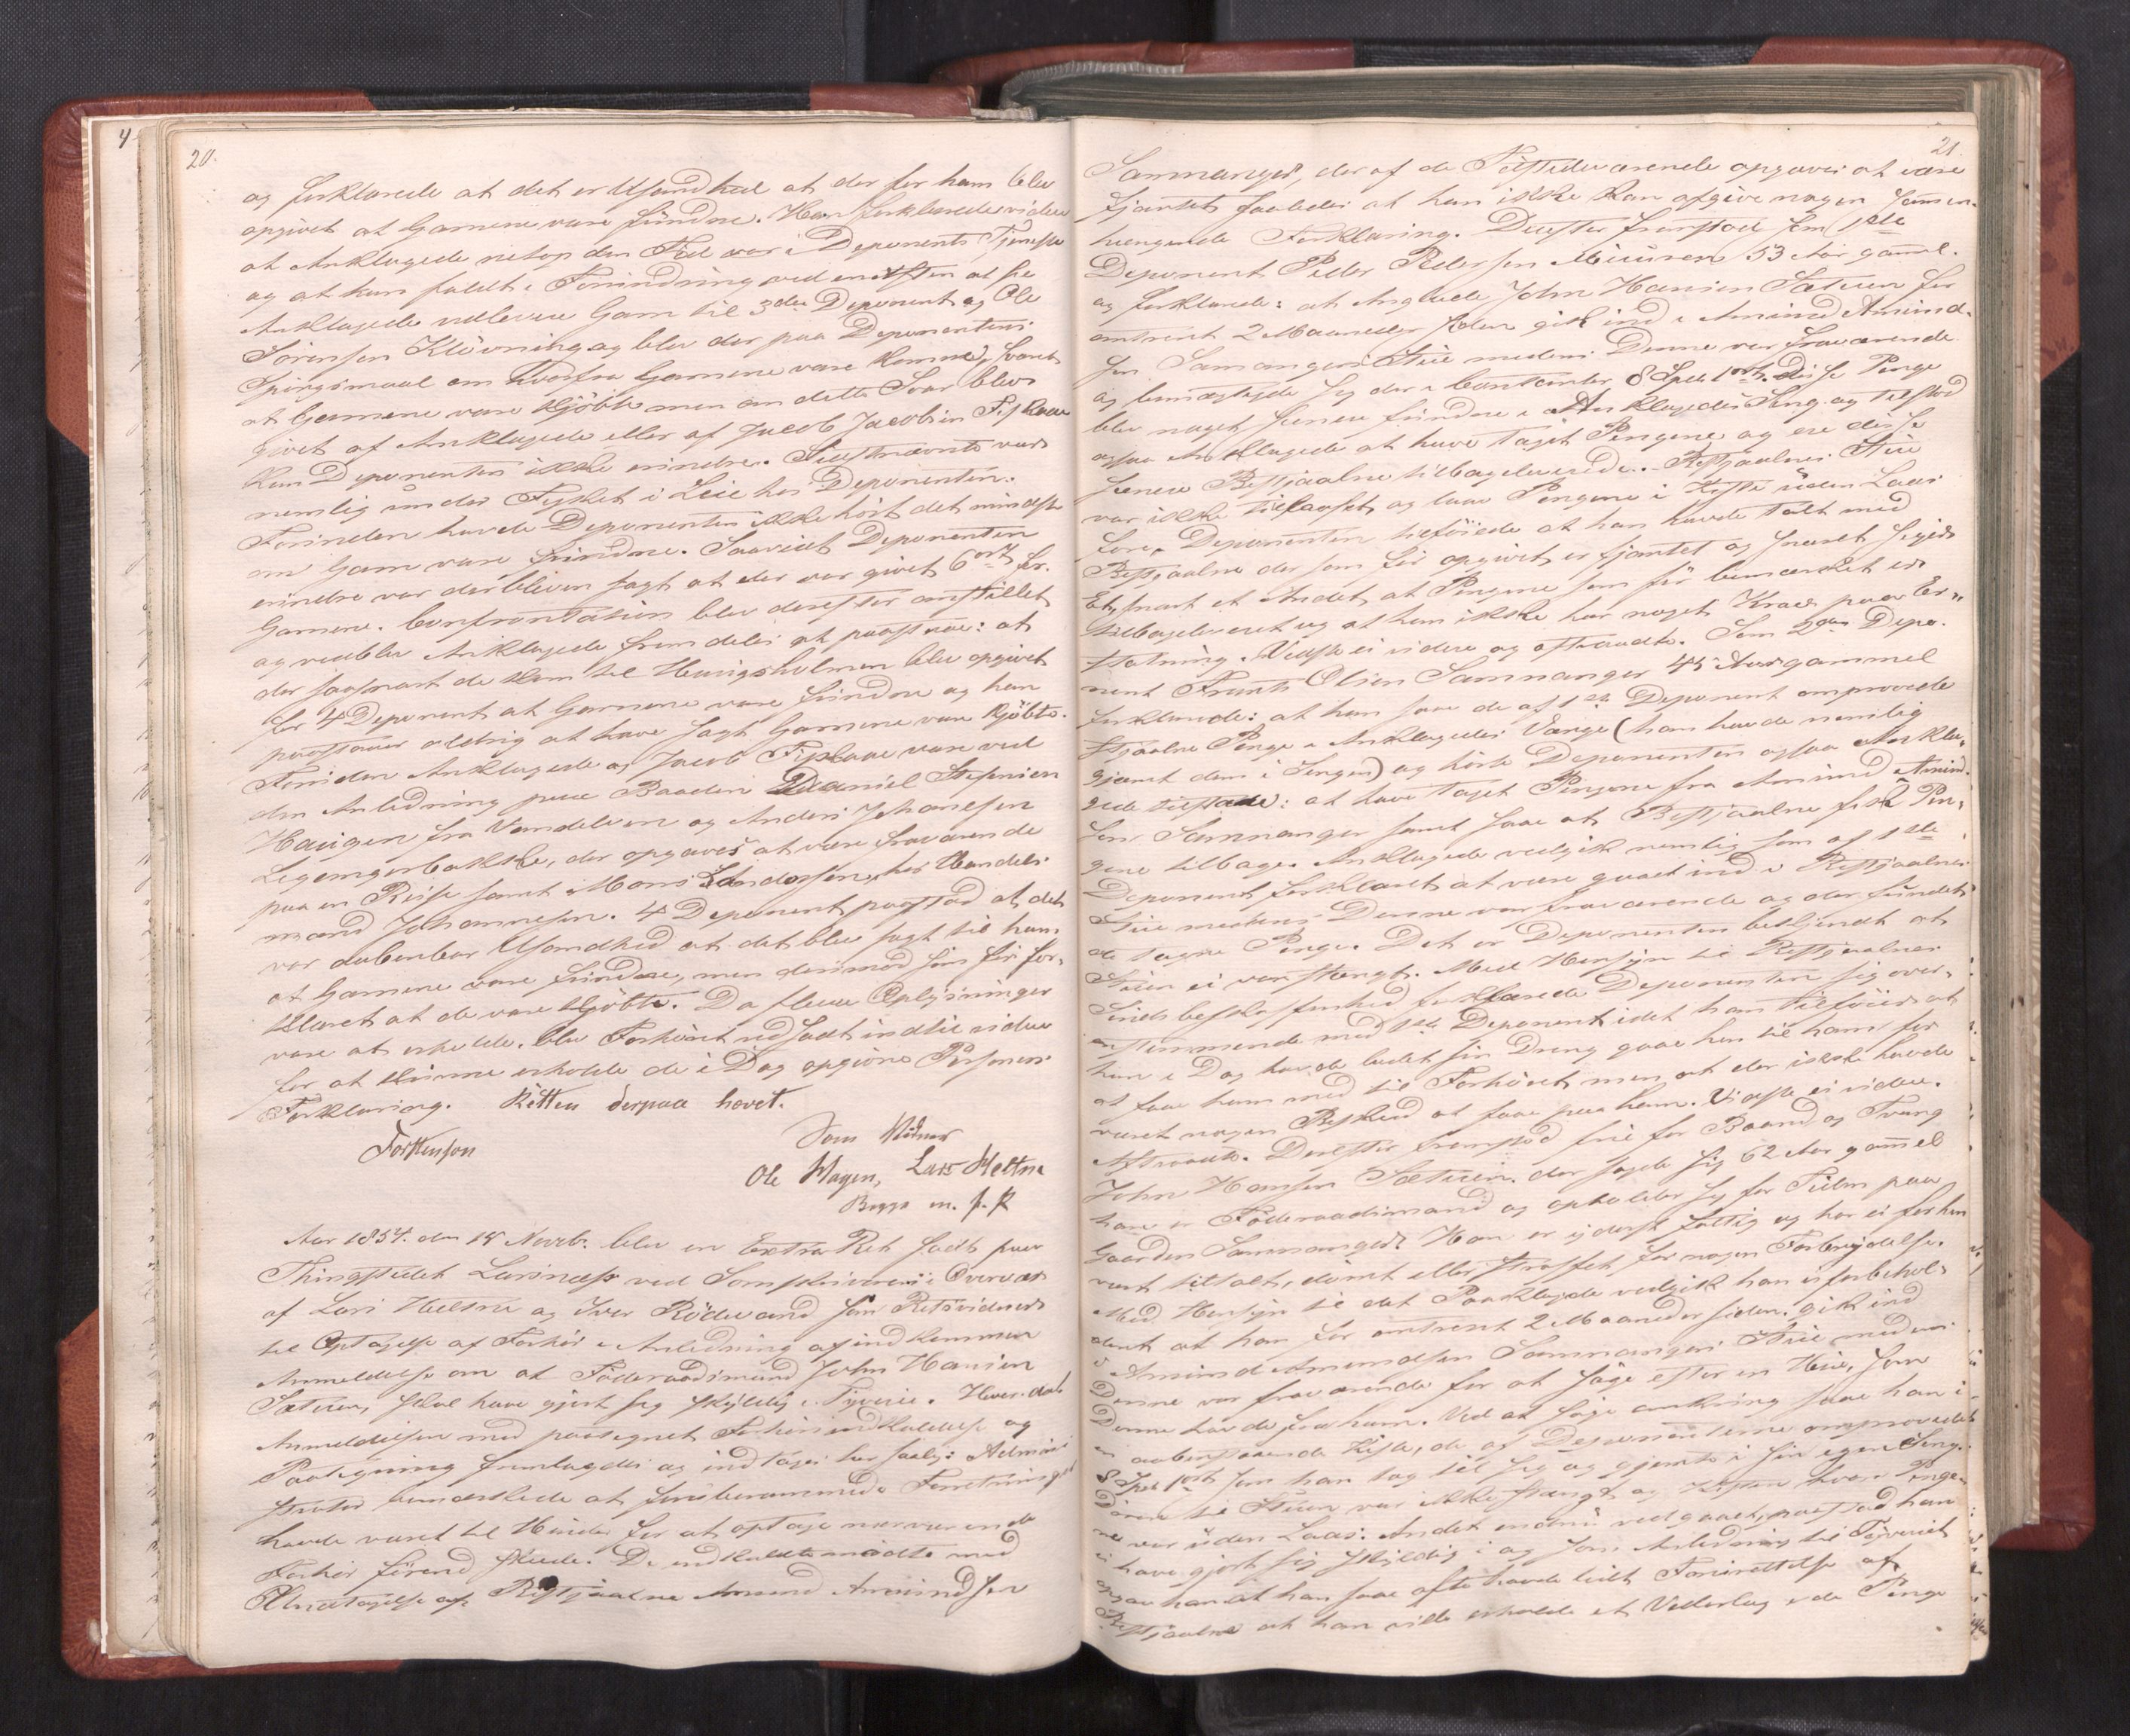 4
20.
og forklarede at det er Usandhed at der for ham blev
opgivet at Garnene vare fundne. Han forklarede videre
at Anklagede netop den Tid var i Deponents Tjeneste
og at han faldt i Forundring ved en Aften at se
Anklagede udlevere Garn til 3die Deponent og Ole
Sørensen Kløvning og blev der paa Deponentens
Spørgsmaal om hvorfra Garnene vare komne, svaret
at Garnene vare kjøbte men om dette Svar blev
givet af Anklagede eller af Jacob Jacobsen
kan Deponenten ikke erindre. Sidstnævnte var
nemlig under Fisket i Leie hos Deponenten.
Forinden havde Deponenten ikke hørt det mindste
om Garn vare fundne. Saavidt Deponenten
erindre var der bleven sagt at der var givet 6 ort for
Garnene. Confrontation blev derefter anstillet
og vedblev Anklagede fremdeles at paastaae: at
der saasnart de kom til Haugsholmen blev opgivet
for 4 Deponent at Garnene vare fundne og han
paastaaer aldrig at have sagt Garnene vare kjøbte.
Foruden Anklagede og Jacob vare ved
den Anledning paa Baaden Daniel Stefensen
Haugen fra Vandelven og Anders Johansen
, der opgaves at være fraværende
paa en Reise samt Mons Andersen, hos Handels-
mand Johannesen. 4 Deponent paastod at det
var aabenbar Usandhed at det blev sagt til ham
at Garnene vare fundne, men derimod som før for-
klaret at de vare kjøbte. Da flere Oplysninger
vare at erholde, blev Forhøret udsadt indtil videre
for at kunne erholde de i Dag opgivne Personers
Forklaring. Retten derpaa hævet.
Som Vidner
Ole Hagen, Lars Heltne
Begge m. f. P.
Aar 1854. den 15 Novb. blev en Extra Ret sadt paa
Thingstedet Larsnæs ved Sorenskriveren i Overvær
af Lars Heltne og Iver Rødesand som Retsvidner
til Optagelse af Forhør i Anledning af indkommen
Anmeldelse om at Føderaadsmand John Hansen
Sætren, skal have gjort sig skyldig i Tyverie.
Anmeldelsen med paategnet Forhørsindkaldelse og
Paategning fremlagdes og indtages her saalydende: Admini-
strator bemærkede at foreberammede Forretninger
havde været til Hinder for at optage nærværende
Forhør førend skede. De indkaldte mødte med
Undtagelse af Bestjaalne Amund Amundsen
21.
Samnanger, der af de Tilstedeværende opgaves at være
fjantet saaledes at han ikke kan afgive nogen sammen-
hængende Forklaring. Derefter fremstod som 1ste
Deponent Peder Pedersen 53 Aar gammel.
og forklarede: at Angivede John Hansen Sætren for
omtrent 2 Maaneder siden gik ind i Amund Amund-
sen Samnangers Stue medens Denne var fraværende
og bemægtigede sig der i Contanter 8 Spd 1 ort. Disse Penge
blev noget senere fundne i Anklagedes Seng og tilstod
ogsaa Anklagede at have taget Pengene og ere disse
senere Bestjaalne tilbageleverede. Bestjaalnes Stue
var ikke tillaaset og laae Pengene i Kiste uden Laas
fore. Deponenten tilføiede at han havde talt med
Bestjaalne der som før opgivet er fjantet og snart siger
Et, snart et Andet, at Pengene som før bemærket er
tilbageleveret og at han ikke har noget Krav paa Er-
statning. Vidste ei videre og aftraadte. Som 2den Depo-
nent Frants Olsen Samnanger 45 Aar gammel
forklarede: at han saae de af 1ste Deponent omprovede
stjaalne Penge i Anklagedes Værge (han havde nemlig
gjemt dem i Sengen) og hørte Deponenten ogsaa Ankla-
gede tilstaae: at have taget Pengene fra Amund Amund-
sen Samnanger samt saae at Bestjaalne fik Pen-
gene tilbage. Anklagede vedgik nemlig som af 1ste
Deponent forklaret at være gaaet ind i Bestjaalnes
Stue medens Denne var fraværende og der fundet
de tagne Penge. Det er Deponenten bekjendt at
Stuen ei var stængt. Med Hensyn til Bestjaalnes
Sindsbeskaffenhed forklarede Deponenten sig over-
enstemmende med 1ste Deponent idet han tilføier at
han i Dag havde ladet sin Dreng gaae hen til ham for
at faae ham med til Forhøret men at der ikke havde
været nogen Besked at faae paa ham. Vidste ei videre.
Aftraadt. Derefter fremstod frie for Baand og Tvang
John Hansen Sætren. der sagde sig 62 Aar gammel
han er Føderaadsmand og opholder sig for Tiden paa
Gaarden Samnanger. Han er yderst fattig og har ei forhen
været tiltalt, dømt eller straffet for nogen Forbrydelse.
Med Hensyn til det Paaklagede vedgik han uforbehol-
dent at han for omtrent 2 Maaneder siden, gik ind
i Amund Amundsen Samnangers Stue medens
Denne var fraværende for at søge efter en , som
Denne havde fra ham. Ved at søge omkring saae han i
en aabenstaaende Kiste, de af Deponenterne omprovede
8 Spd 1 ort som han tog til sig og gjemte i sin egen Seng.
Døren til Stuen var ikke stængt og Kisten hvori Penge-
ne var uden Laas. Andet endnu vedgaaet, paastod han
ei have gjort sig skyldig i og som Anledning til Tyveriet
opgav han at han saae ofte havde lidt Forurettelse af
Bestjaalne at han vilde erholde et Vederlag i de Penge